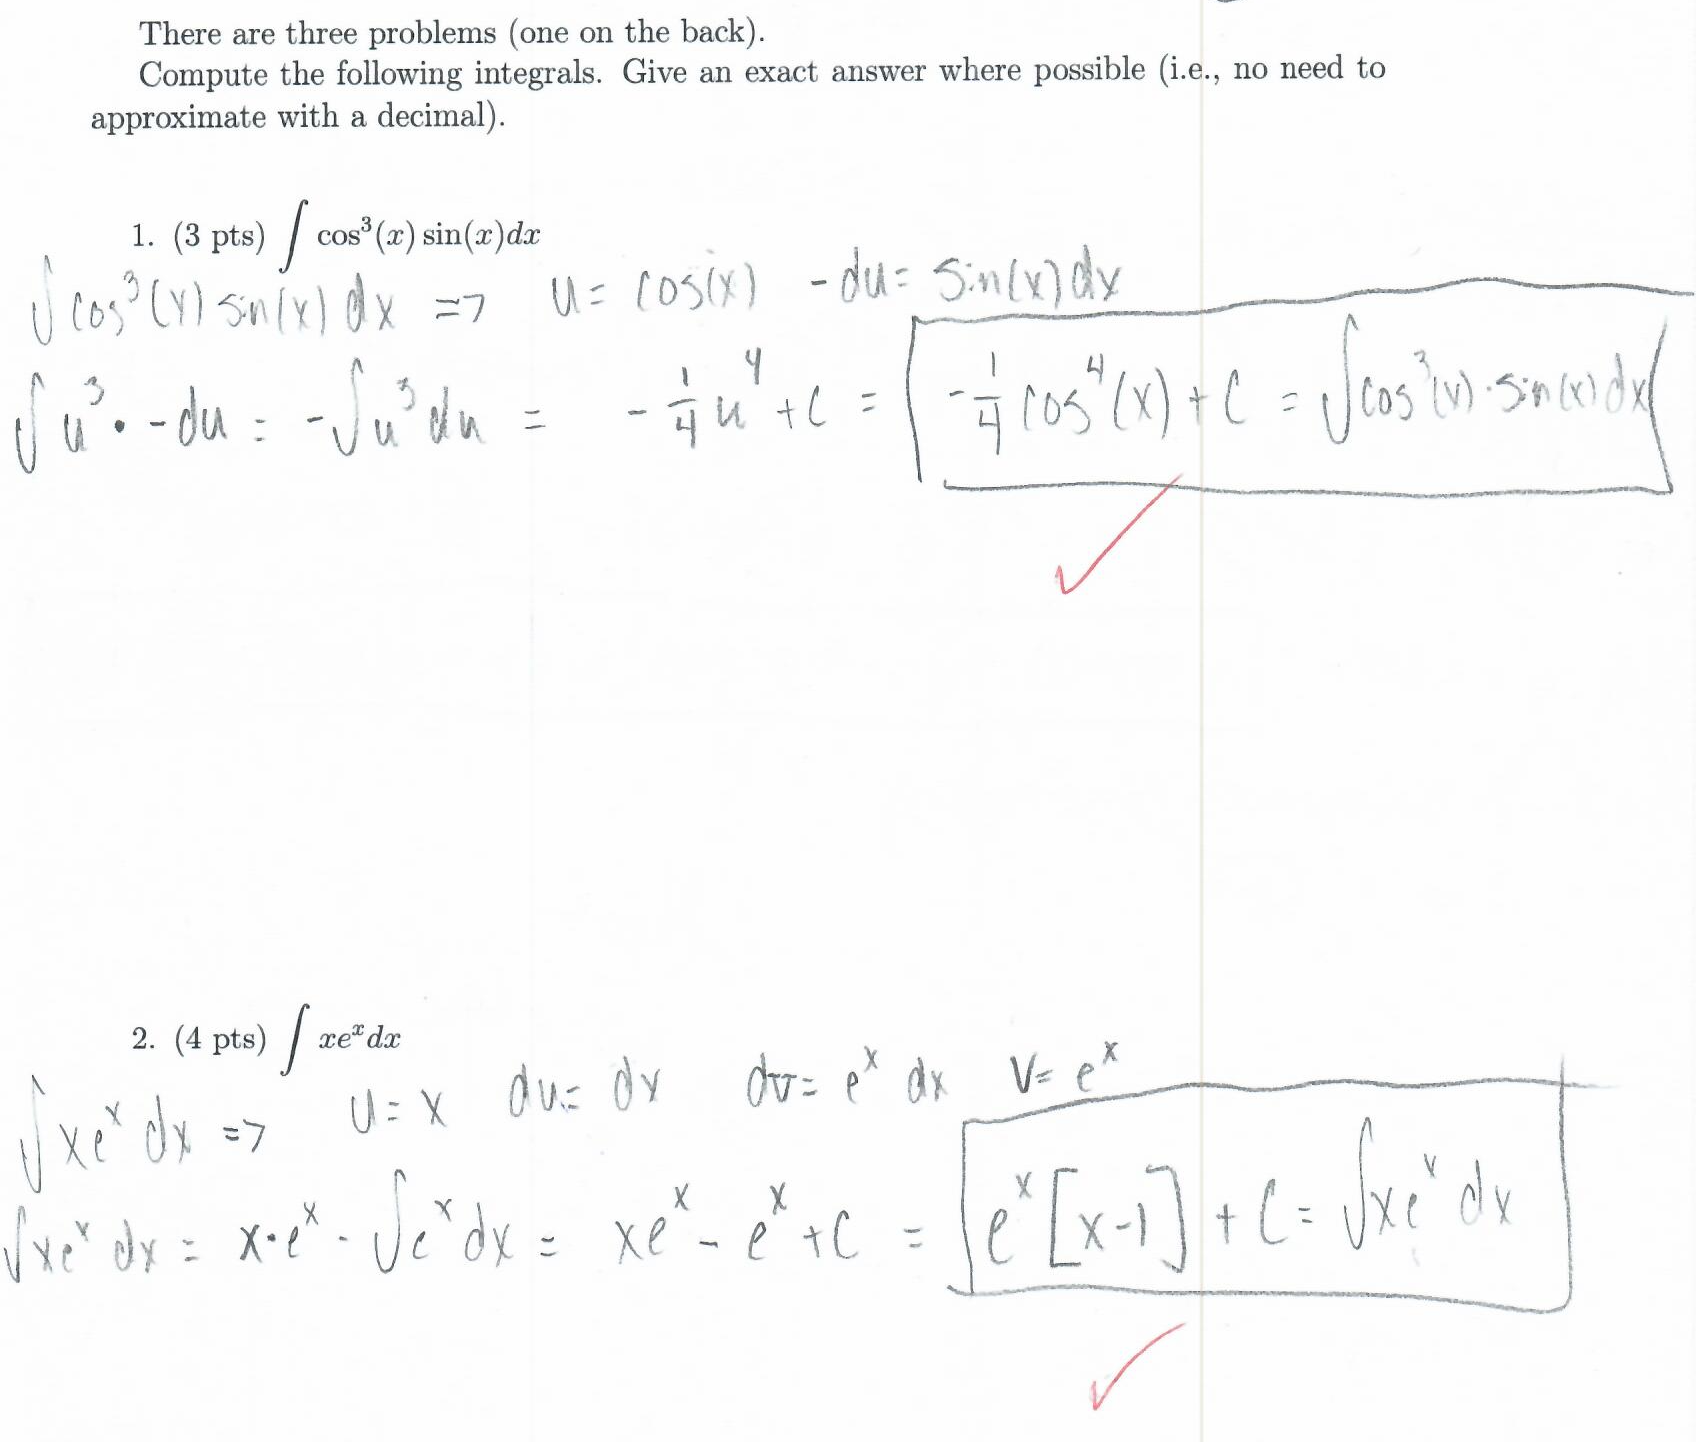 There are three problems (one on the back).
Compute the following integrals. Give an exact answer where possible (i.e., no need to
approximate with a decimal).
1. (3 pts) ∫ cos³(x) sin(x)dx
∫cos³(x) sin(x) dx => u = cos(x) -du = sin(x)dx
∫u³ · -du = -∫u³ du = -1/4 u⁴ + C = -1/4 cos⁴(x) + C = ∫cos³(x)·sin(x)dx
2. (4 pts) ∫ xeˣdx
∫xeˣ dx => u = x du = dx dv = eˣ dx v = eˣ
∫xeˣ dx = x·eˣ - ∫eˣ dx = xeˣ - eˣ + C = eˣ[x-1] + C = ∫xeˣ dx